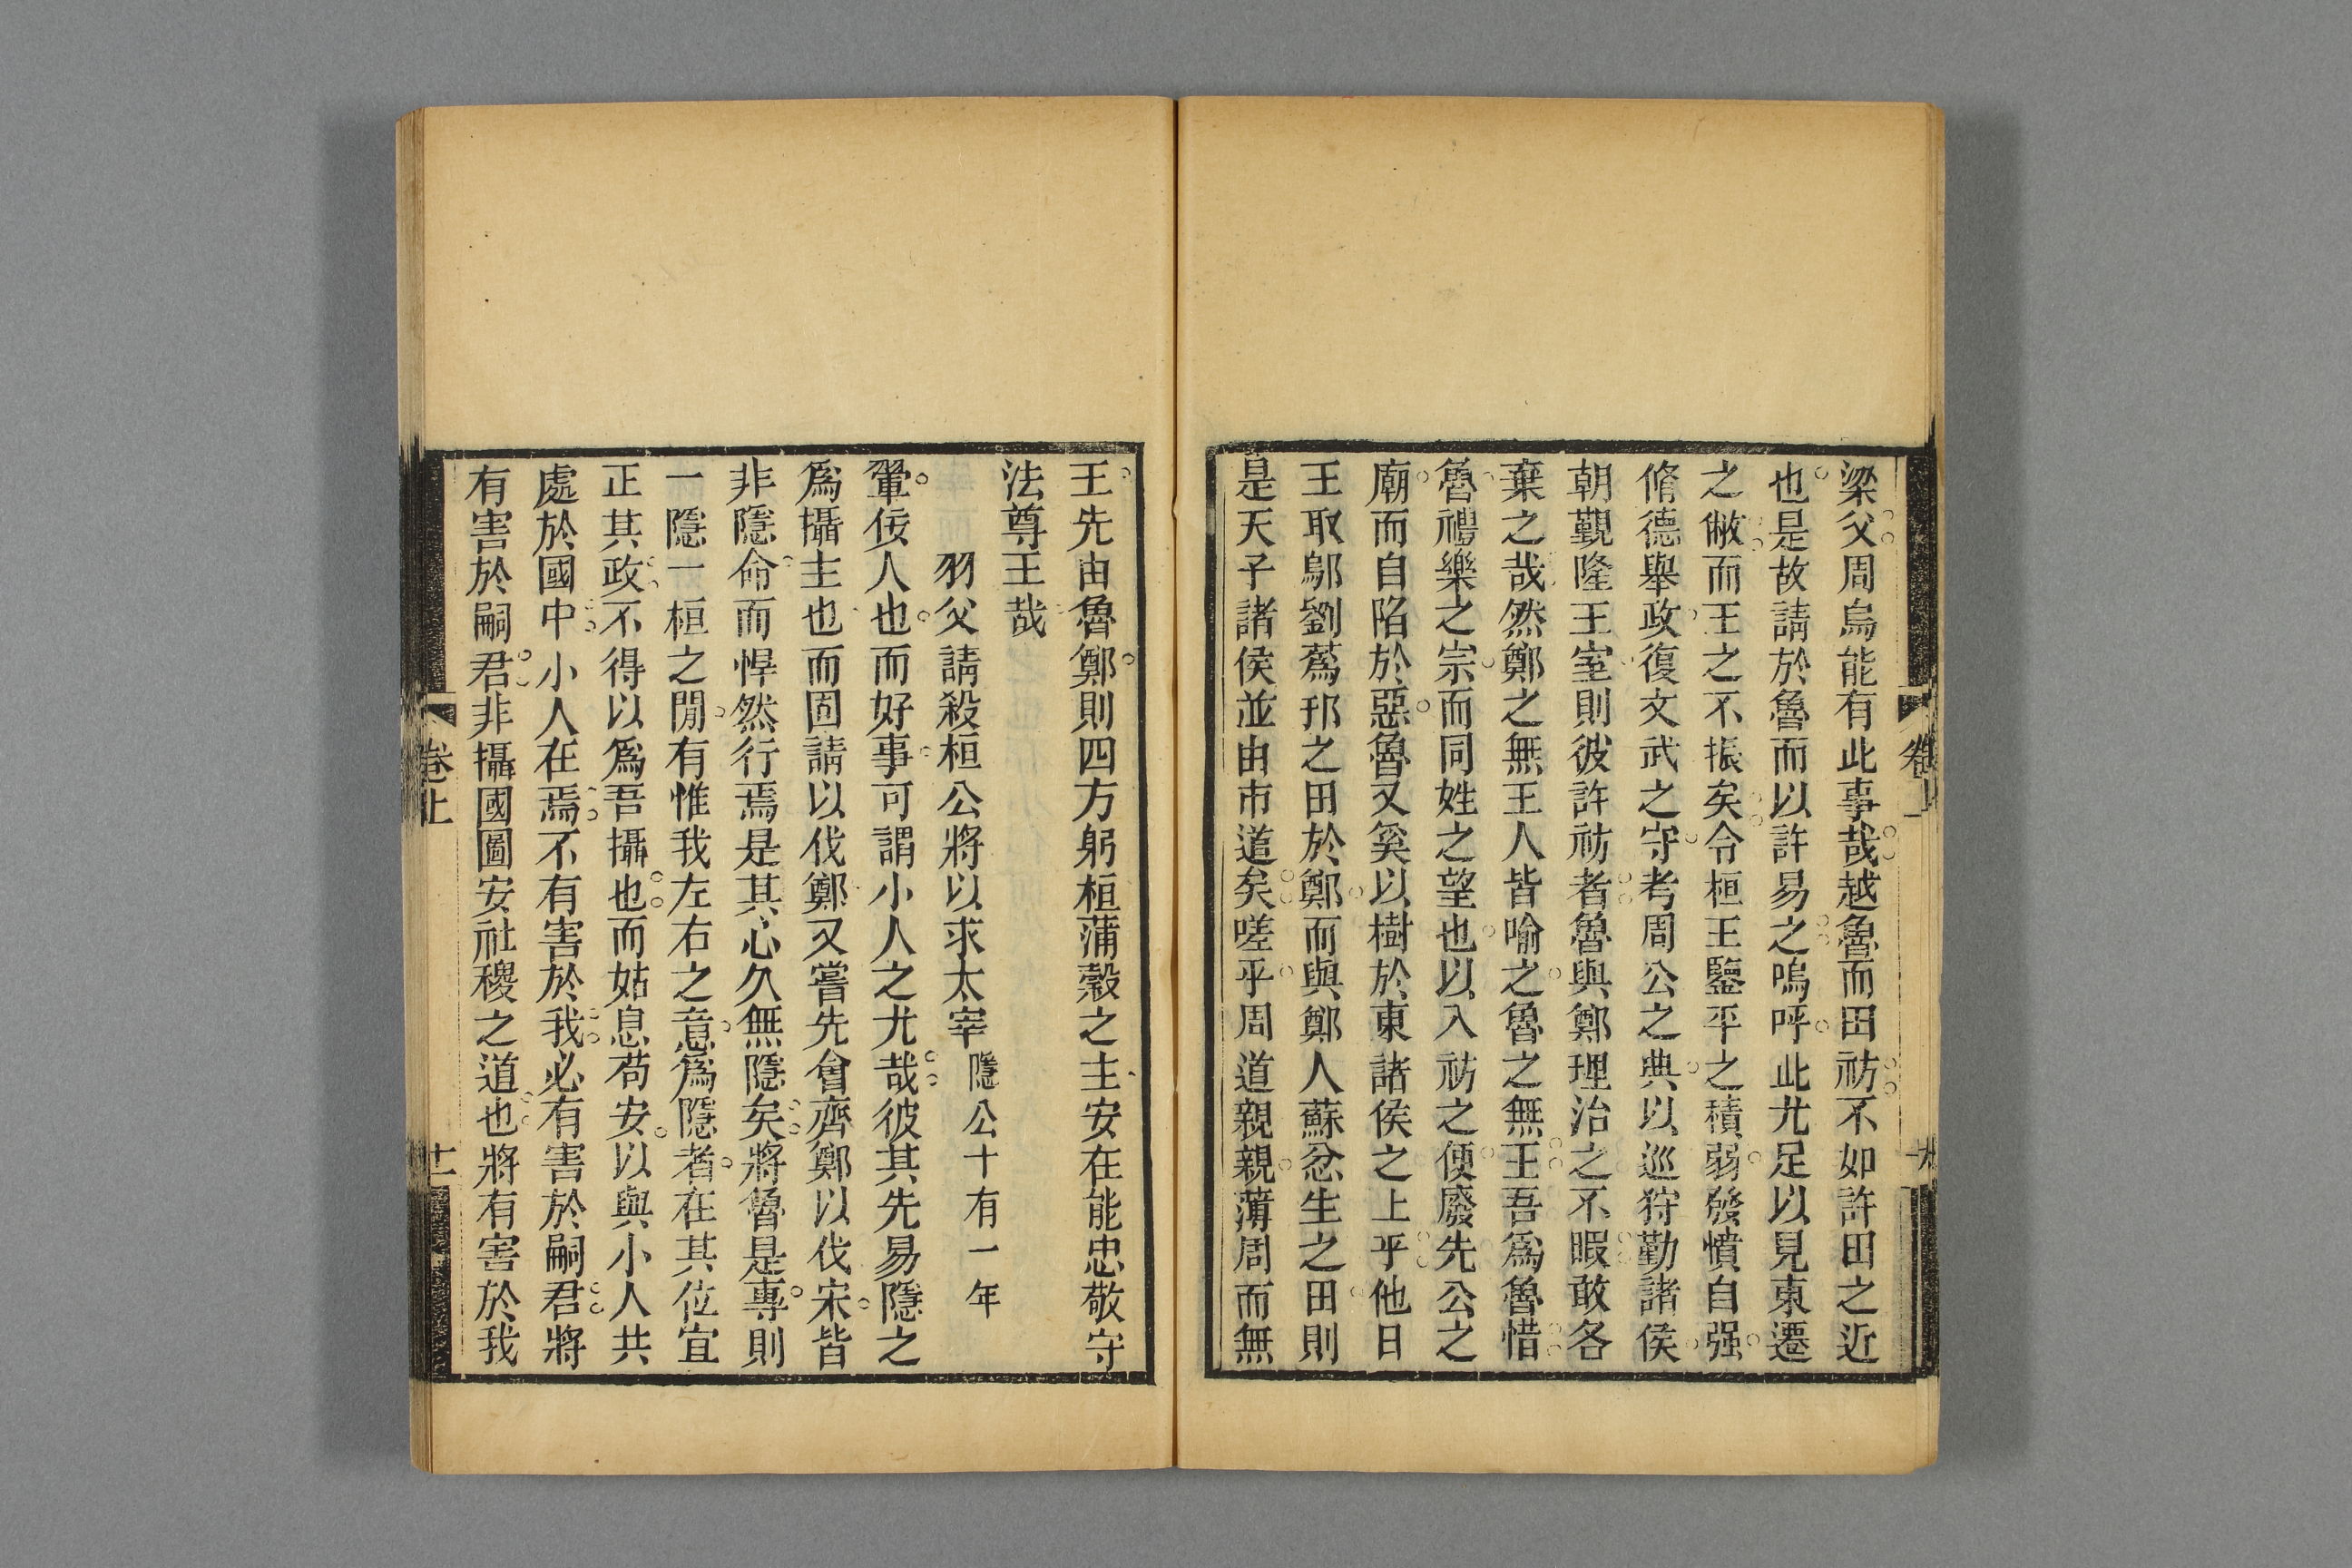 梁父周烏能有此事哉越魯而田祊不如許田之近
也是故請於魯而以許易之嗚呼此尤足以見東遷
之敝而王之不振矣令桓王鑒平之積弱發憤自强
脩德舉政復文武之守考周公之典以巡狩勤諸侯
朝覲隆王室則彼許祊者魯與鄭理治之不暇敢各
棄之哉然鄭之無王人皆喻之魯之無王吾爲魯惜
魯禮樂之宗而同姓之望也以入祊之便廢先公之
廟而自陷於惡魯又奚以樹於東諸侯之上乎他日
王取鄔劉蒍邘之田於鄭而與鄭人蘇忿生之田則
是天子諸侯並由市道矣嗟乎周道親親薄周而無
王先由魯鄭則四方躬桓蒲穀之主安在能忠敬守
法尊王哉
羽父請殺桓公將以求太宰 隱公十有一年
翬佞人也而好事可謂小人之尤哉彼其先易隱之
爲攝主也而固請以伐鄭又嘗先會齊鄭以伐宋皆
非隱命而悍然行焉是其心久無隱矣將魯是專則
一隱一桓之閒有惟我左右之意爲隱者在其位宜
正其政不得以爲吾攝也而姑息苟安以與小人共
處於國中小人在焉不有害於我必有害於嗣君將
有害於嗣君非攝國圖安社稷之道也將有害於我
卷上
十一